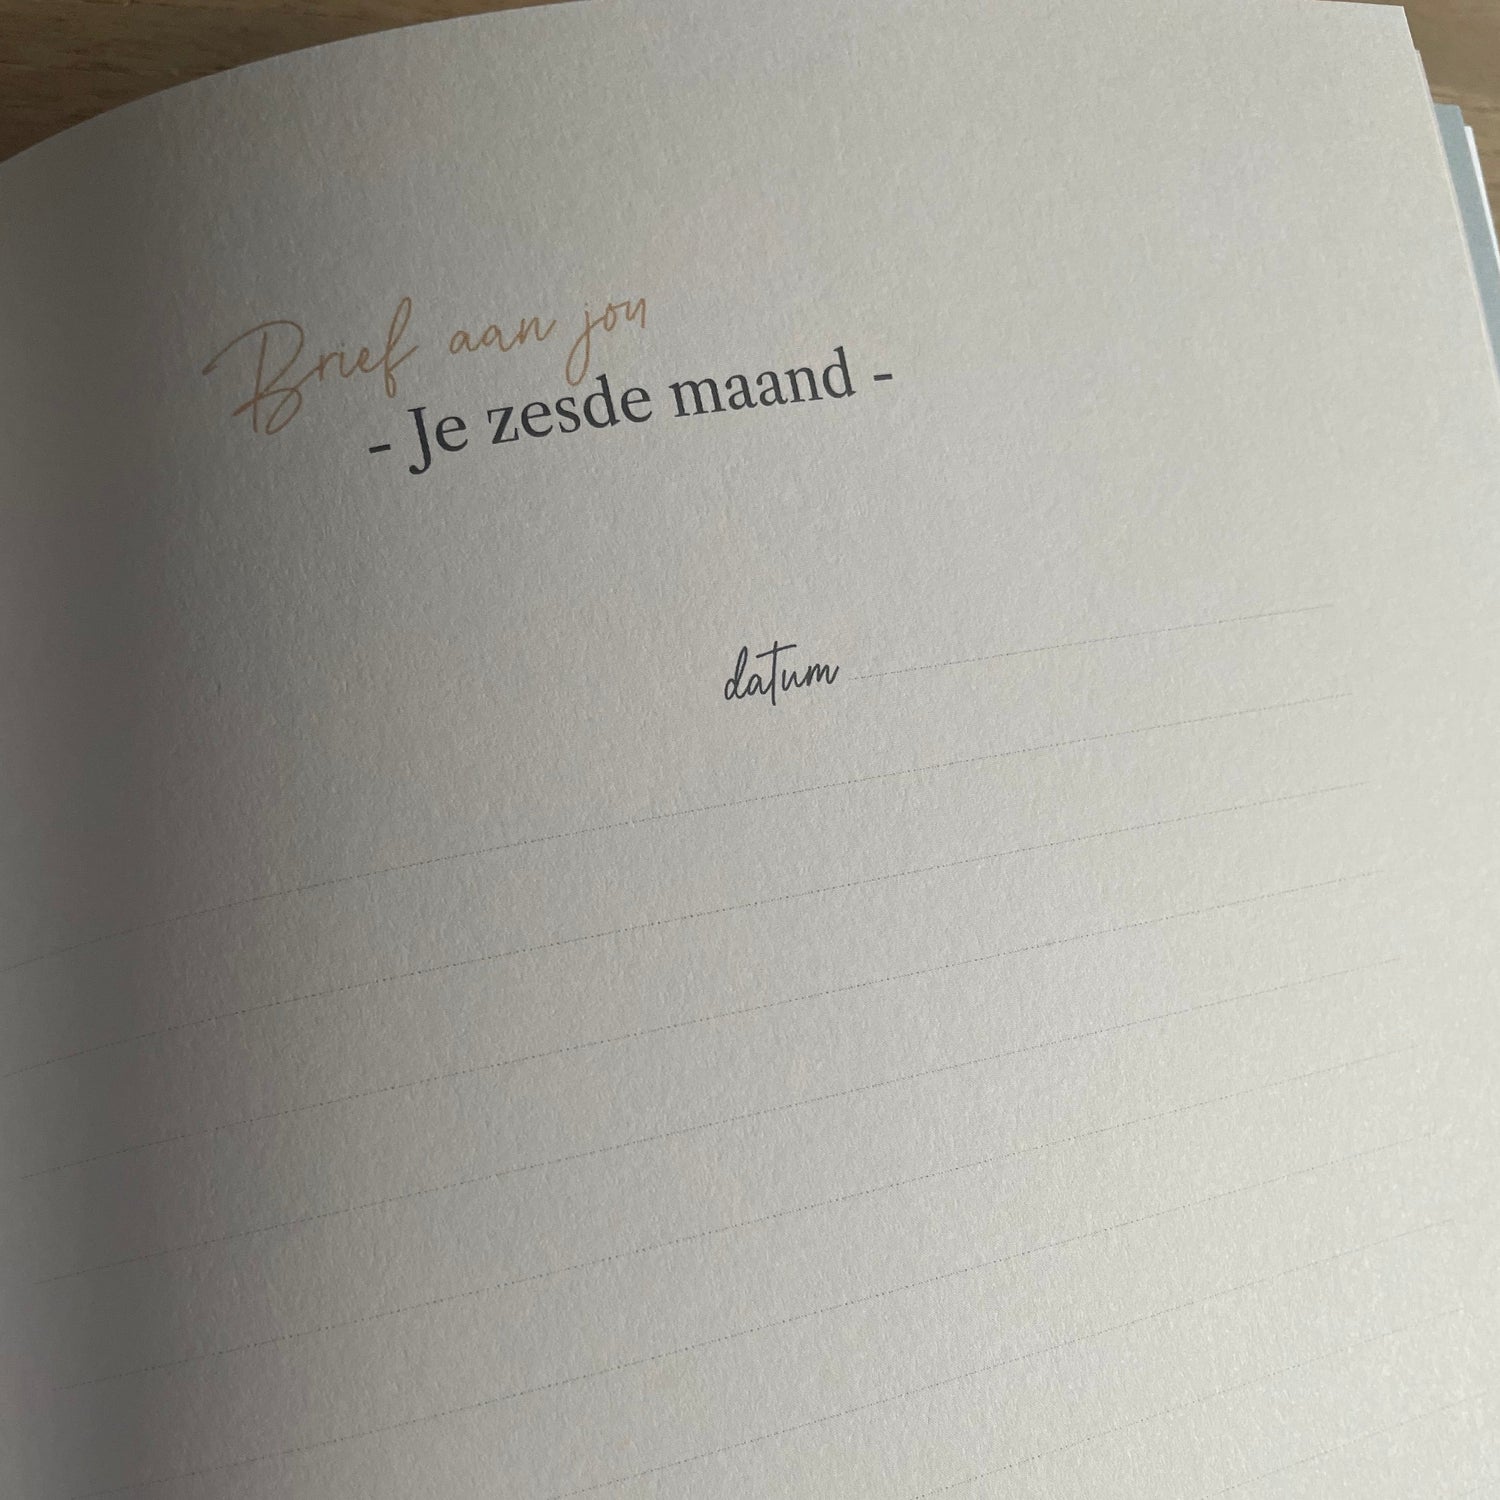 Brief aan jou
- Je zesde maand -
datum